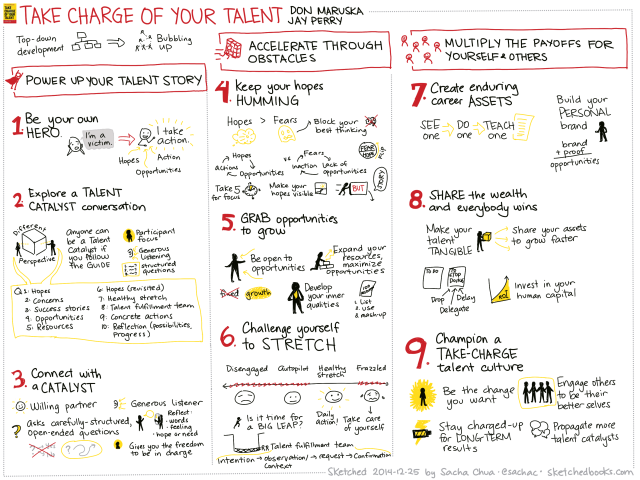 TAKE CHARGE OF YOUR TALENT
DON MARUSKA
JAY PERRY
Top-down
development
Bubbling
up
POWER UP YOUR TALENT STORY
1. Be your own
HERO.
I'm a
victim.
I take
action.
Hopes
Action
Opportunities
2 Explore a TALENT
CATALYST conversation
Different
Perspective
Anyone can
be a Talent
Catalyst if
you follow
the GUIDE
Participant
focus
Generous
listening
structured
questions
Q1: Hopes
2: Concerns
3: Success stories
4: Opportunities
5: Resources
6: Hopes (revisited)
7: Healthy stretch
8: Talent fulfillment team
9: Concrete actions
10: Reflection (possibilities,
Progress)
3. Connect with
a CATALYST
Willing partner
Generous listener
? Asks carefully-structured,
open-ended questions
Reflect:
- words
- feeling
- hope or need
Gives you the freedom
to be in charge
ACCELERATE THROUGH
OBSTACLES
4. Keep your hopes
HUMMING
Hopes > Fears
Block your
best thinking
Hopes
actions
Opportunities
vs
Fears
inaction
Lack of
opportunities
FLIP
Take 5
for focus
Make your
hopes visible
BUT
STORY
5 GRAB opportunities
to grow
Be open to
opportunities
Expand your
resources,
maximize
opportunities
fixed
growth
Develop
your inner
qualities
1. List
2. Use
3. Mash up
6. Challenge yourself
to STRETCH
Disengaged
Autopilot
Healthy
Stretch
Frazzled
Is it time for
a BIG LEAP?
Daily
action!
Take care
of yourself
Talent fulfillment team
Intention → observation/
context
→ request → Confirmation
MULTIPLY THE PAYOFFS FOR
YOURSELF & OTHERS
7. Create enduring
career ASSETS
SEE
one
DO
one
TEACH
one
Build your
PERSONAL
brand
brand
+ proof
opportunities
8. SHARE the wealth
and everybody wins
Make your
talent
TANGIBLE
Share your assets
to grow faster
TO DO
Drop
Delay
Delegate
ROI
Invest in your
human capital
9. Champion a
TAKE-CHARGE
talent culture
Be the change
you want
Engage others
to be their
better selves
Stay charged-up
for LONG-TERM
results
Propagate more
talent catalysts
Sketched 2014-12-25 by Sacha Chua · @sachac · sketchedbooks.com